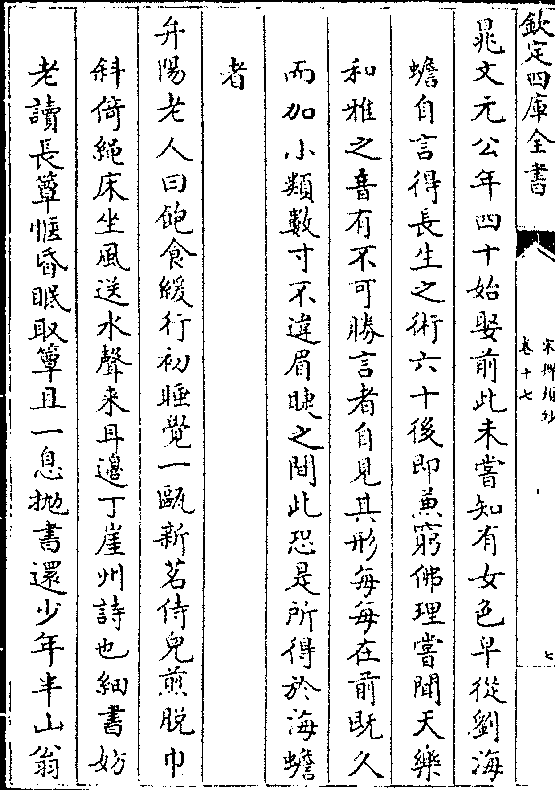 欽定四庫全書
宋稗類鈔
卷十七
七
晁文元公年四十始娶前此未嘗知有女色早從劉海
蟾自言得長生之術六十後即兼窮佛理嘗聞天樂
和雅之音有不可勝言者自見其形每每在前既久
而加小類數寸不違眉睫之間此恐是所得於海蟾
者
弁陽老人曰飽食緩行初睡覺一甌新茗侍兒煎脫巾
斜倚繩床坐風送水聲來耳邊丁崖州詩也細書妨
老讀長簟愜昏眠取簟且一息抛書還少年半山翁